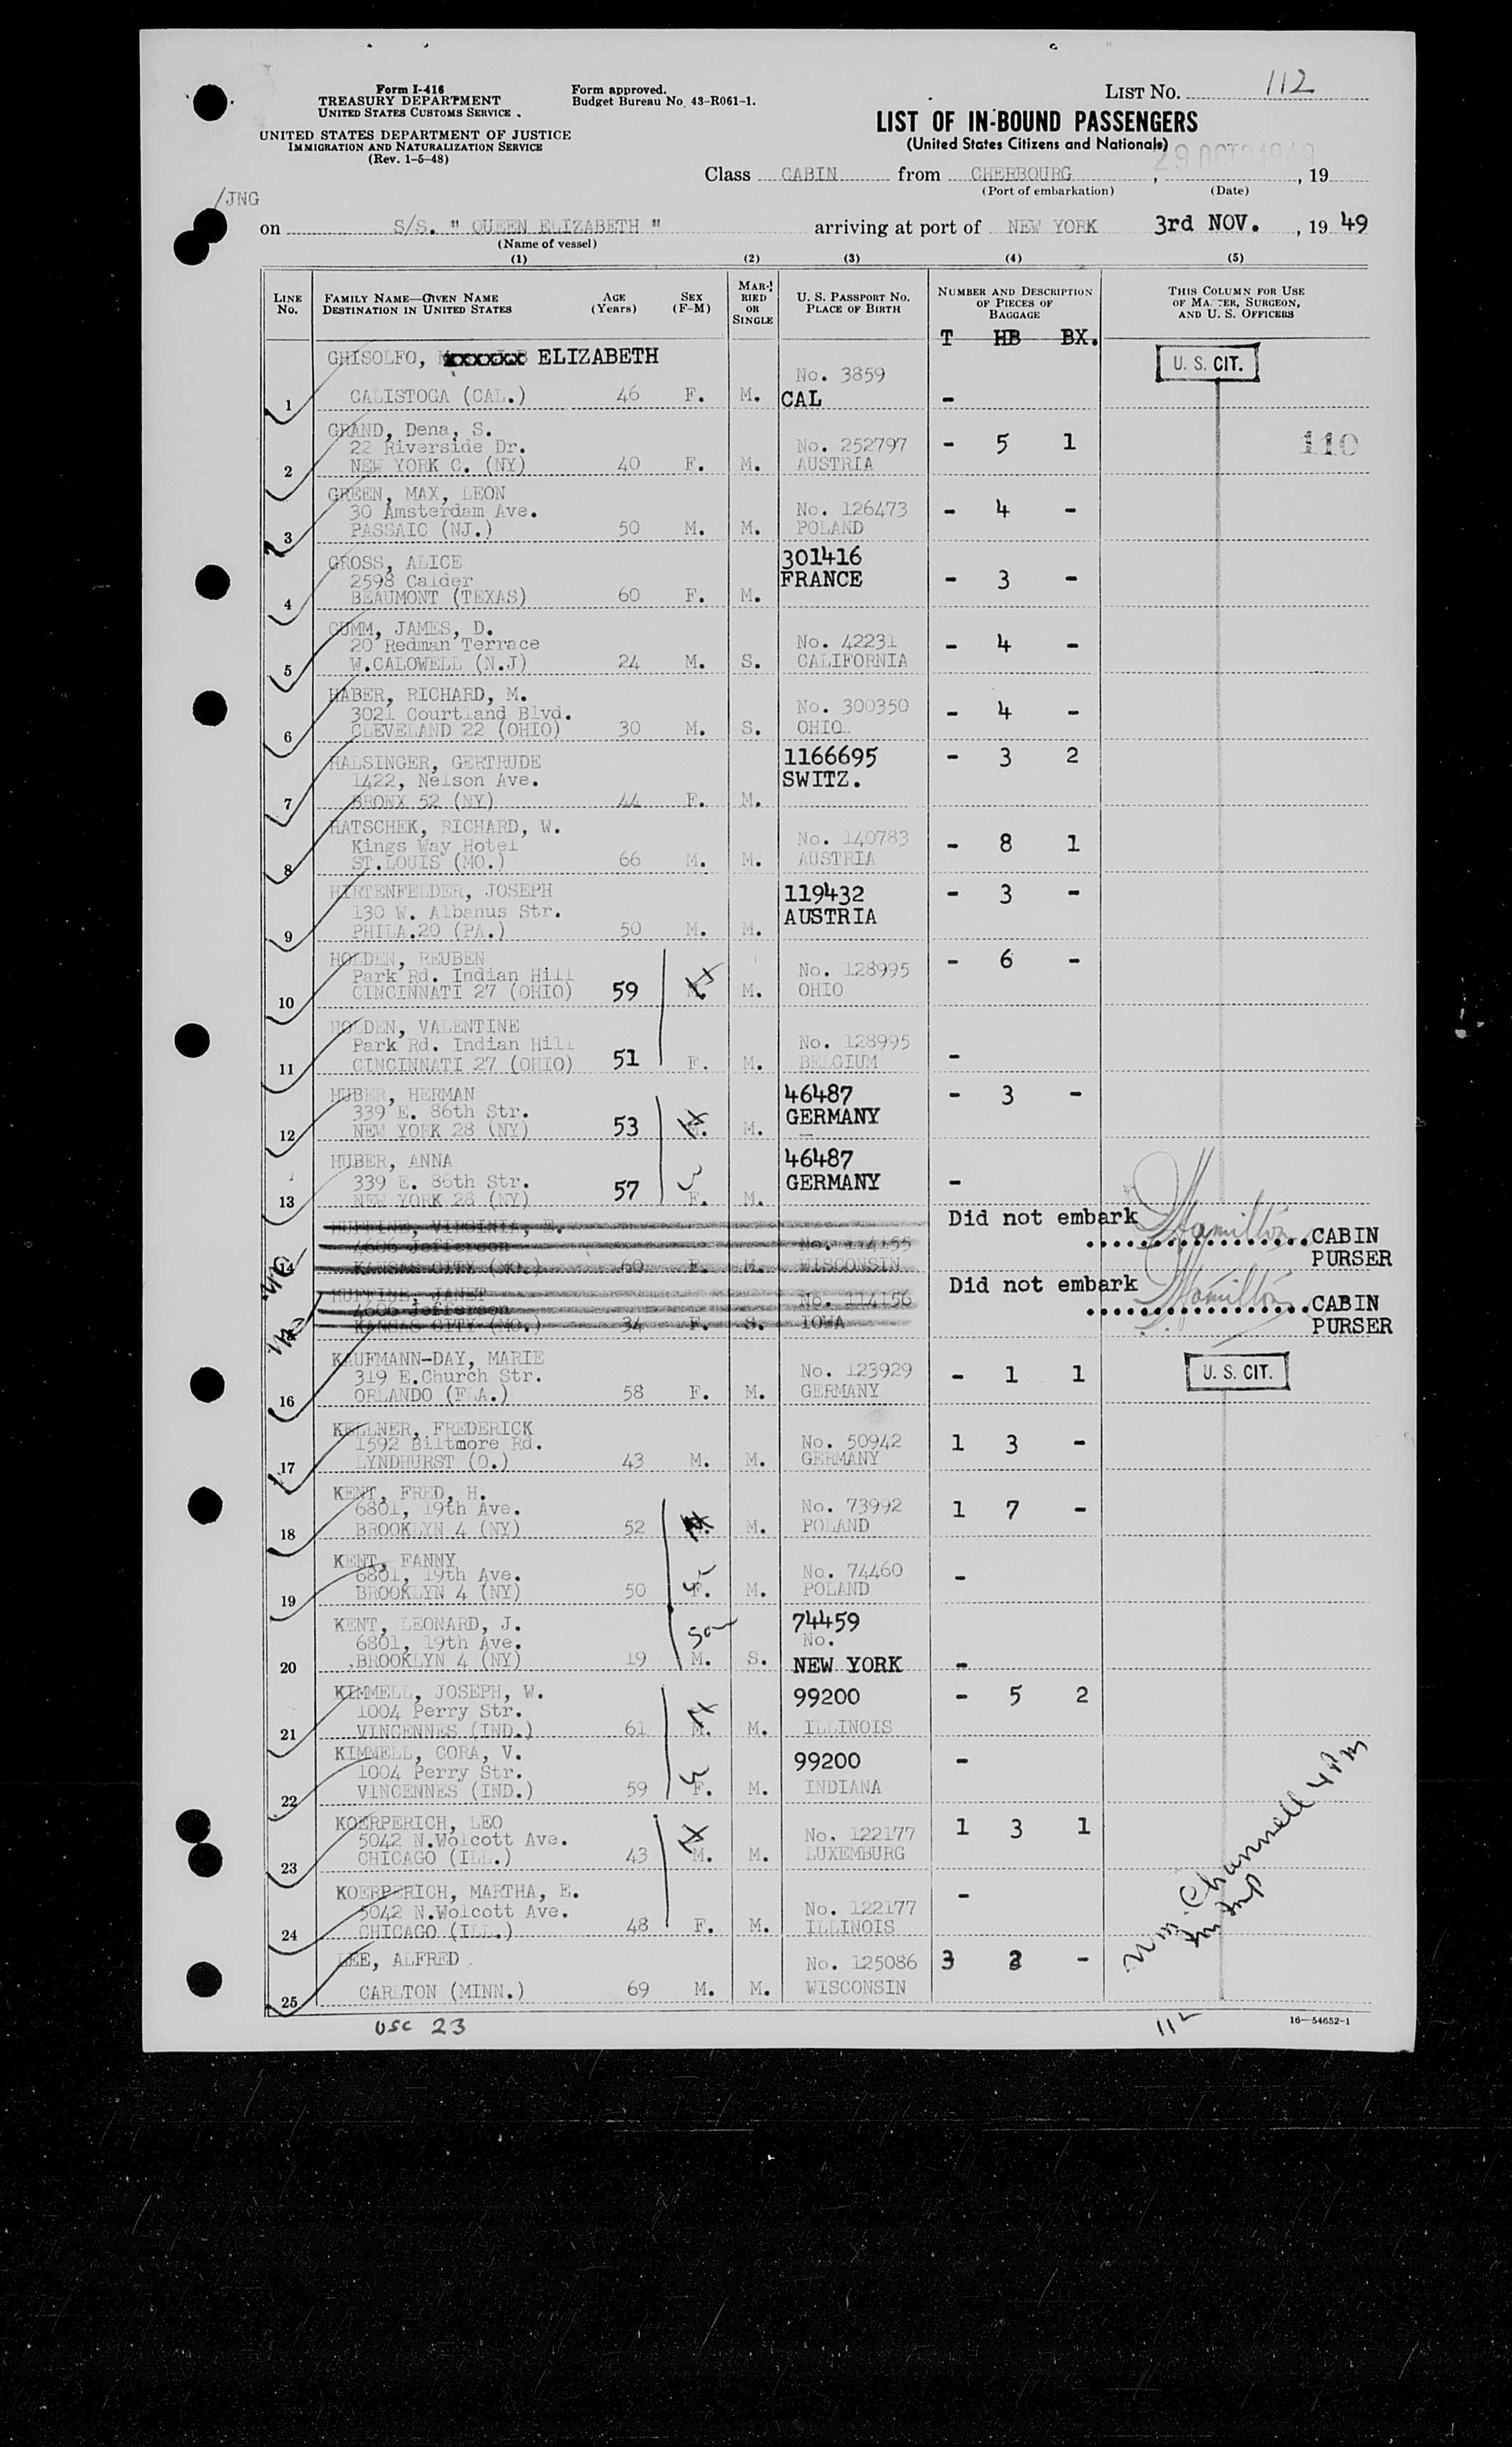 Form I-416
TREASURY DEPARTMENT
UNITED STATES CUSTOMS SERVICE
UNITED STATES DEPARTMENT OF JUSTICE
IMMIGRATION AND NATURALIZATION SERVICE
(Rev. 1-5-48)
Form approved.
Budget Bureau No. 43-R061-1.
LIST NO. 112
LIST OF IN-BOUND PASSENGERS
(United States Citizens and Nationals)
29 OCT 1949
Class CABIN from CHERBOURG , , 19
(Port of embarkation) (Date)
/JNG
on S/S. " QUEEN ELIZABETH " arriving at port of NEW YORK 3rd NOV. , 19 49
(Name of vessel)
(1) (2) (3) (4) (5)
LINE NO. FAMILY NAME—GIVEN NAME DESTINATION IN UNITED STATES AGE (Years) SEX (F-M) MARRIED OR SINGLE U. S. PASSPORT NO. PLACE OF BIRTH NUMBER AND DESCRIPTION OF PIECES OF BAGGAGE THIS COLUMN FOR USE OF MASTER, SURGEON, AND U. S. OFFICERS
T HB BX.
GHISOLFO, xxxxxx ELIZABETH U. S. CIT.
No. 3859
1 CALISTOGA (CAL.) 46 F. M. CAL -
GRAND, Dena, S.
22 Riverside Dr. No. 252797 - 5 1 110
2 NEW YORK C. (NY) 40 F. M. AUSTRIA
GREEN, MAX, LEON
30 Amsterdam Ave. No. 126473 - 4 -
3 PASSAIC (NJ.) 50 M. M. POLAND
GROSS, ALICE 301416
2598 Calder FRANCE - 3 -
4 BEAUMONT (TEXAS) 60 F. M.
GUMM, JAMES, D.
20 Redman Terrace No. 42231 - 4 -
5 W.CALOWELL (N.J) 24 M. S. CALIFORNIA
HABER, RICHARD, M.
3021 Courtland Blvd. No. 300350 - 4 -
6 CLEVELAND 22 (OHIO) 30 M. S. OHIO
HALSINGER, GERTRUDE 1166695 - 3 2
1422, Nelson Ave. SWITZ.
7 BRONX 52 (NY) 44 F. M.
HATSCHEK, RICHARD, W.
Kings Way Hotel No. 140783 - 8 1
8 ST.LOUIS (MO.) 66 M. M. AUSTRIA
HIRTENFELDER, JOSEPH 119432 - 3 -
130 W. Albanus Str. AUSTRIA
9 PHILA.20 (PA.) 50 M. M.
HOLDEN, REUBEN - 6 -
Park Rd. Indian Hill No. 128995
10 CINCINNATI 27 (OHIO) 59 M. OHIO
HOLDEN, VALENTINE
Park Rd. Indian Hill No. 128995
11 CINCINNATI 27 (OHIO) 51 F. M. BELGIUM -
HUBER, HERMAN 46487 - 3 -
339 E. 86th Str. GERMANY
12 NEW YORK 28 (NY) 53 M. M.
HUBER, ANNA 46487
339 E. 86th Str. GERMANY -
13 NEW YORK 28 (NY) 57 F. M.
HUFTINE, VIRGINIA, E. Did not embark Hamilton
4606 Jefferson No. 114155 CABIN
14 KANSAS CITY (MO.) 60 F. M. WISCONSIN PURSER
HUFTINE, JANET Did not embark Hamilton
4606 Jefferson No. 114156 CABIN
KANSAS CITY (MO.) 34 F. S. IOWA PURSER
KAUFMANN-DAY, MARIE
319 E.Church Str. No. 123929 - 1 1 U. S. CIT.
16 ORLANDO (FLA.) 58 F. M. GERMANY
KELLNER, FREDERICK
1592 Biltmore Rd. No. 50942 1 3 -
17 LYNDHURST (O.) 43 M. M. GERMANY
KENT, FRED, H.
6801, 19th Ave. No. 73992 1 7 -
18 BROOKLYN 4 (NY) 52 M. POLAND
KENT, FANNY
6801, 19th Ave. No. 74460 -
19 BROOKLYN 4 (NY) 50 F. M. POLAND
KENT, LEONARD, J. 74459
6801, 19th Ave. son No.
20 BROOKLYN 4 (NY) 19 M. S. NEW YORK -
KIMMELL, JOSEPH, W. 99200 - 5 2
1004 Perry Str.
21 VINCENNES (IND.) 61 M. M. ILLINOIS
KIMMELL, CORA, V. 99200 -
1004 Perry Str.
22 VINCENNES (IND.) 59 F. M. INDIANA
KOERPERICH, LEO 1 3 1
5042 N.Wolcott Ave. No. 122177
23 CHICAGO (ILL.) 43 M. M. LUXEMBURG
KOERPERICH, MARTHA, E. -
5042 N.Wolcott Ave. No. 122177
24 CHICAGO (ILL.) 48 F. M. ILLINOIS
LEE, ALFRED No. 125086 3 2 -
25 CARLTON (MINN.) 69 M. M. WISCONSIN
Wm. Channell 4 PM
USC 23
112
16—54652-1